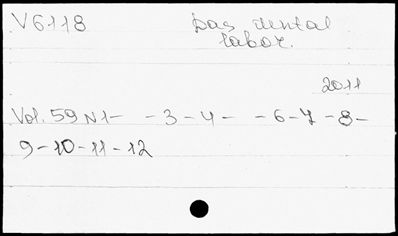 V6118 Das dental
labor.
2011
Vol. 59 N1- -3-4- -6-7-8-
9-10-11-12